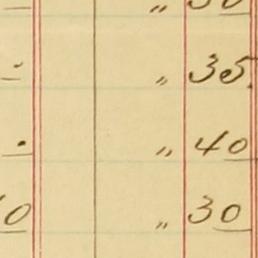 „ 30
- „ 35
- „ 40
0 „ 30